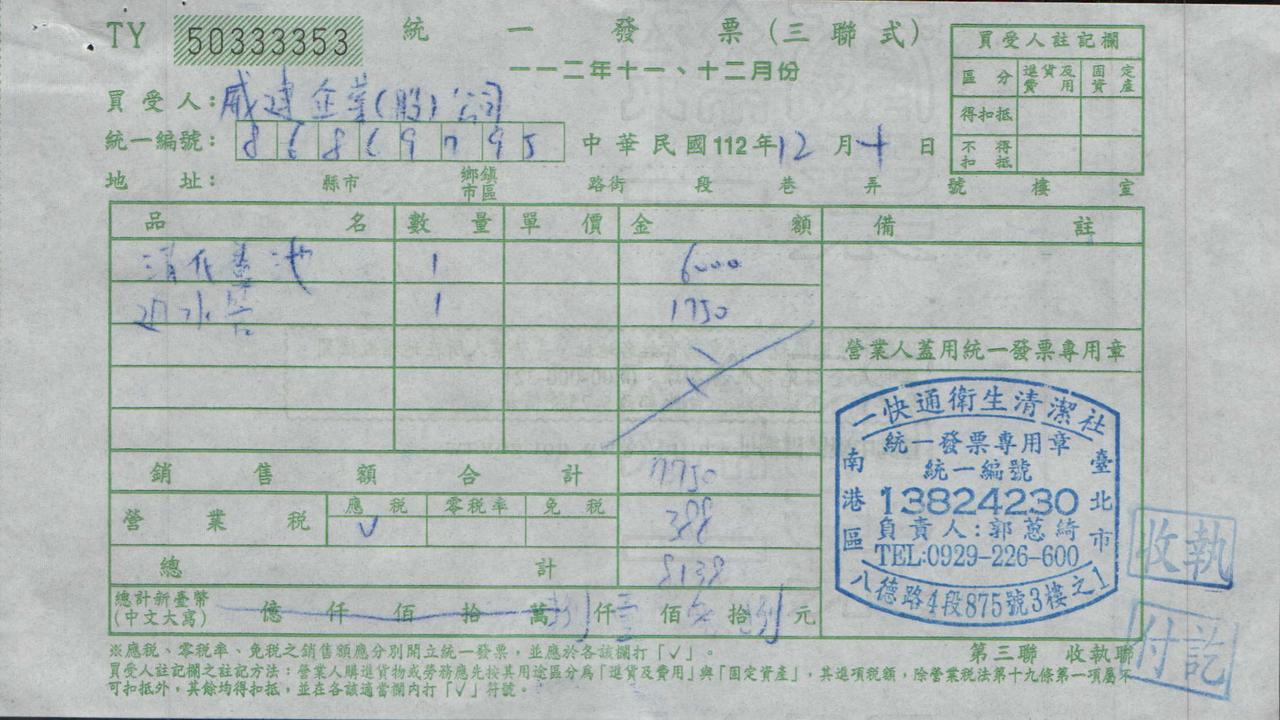 TY 50333353 統一發票(三聯式)
一一二年十一、十二月份
買受人註記欄
區分 進貨及費用 固定資產
得扣抵
不得扣抵
買受人:威建企業(股)公司
統一編號: 中華民國112年12月 日
地址: 縣市 鄉鎮市區 路街 段 巷 弄 號 樓 室
品名 數量 單價 金額 備註
清化糞池 1 6000
通水管 1 1750
營業人蓋用統一發票專用章
銷售額合計 7750
營業稅 應稅 零稅率 免稅 388
V
總計 8138
總計新臺幣(中文大寫) 億 仟 佰 拾 萬 捌 仟 壹 佰 拾 捌 元
一快通衛生清潔社
統一發票專用章
統一編號
13824230
負責人:郭蔥綺
TEL:0929-226-600
臺北市
南港區
八德路4段875號3樓之1
收執
付訖
※應稅、零稅率、免稅之銷售額應分別開立統一發票,並應於各該欄打「✓」。
第三聯 收執聯
買受人註記欄之註記方法:營業人購進貨物或勞務應先按其用途區分為「進貨及費用」與「固定資產」,其進項稅額,除營業稅法第十九條第一項屬不
可扣抵外,其餘均得扣抵,並在各該適當欄內打「✓」符號。